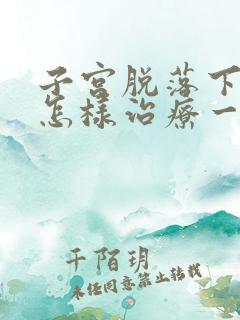 子宫脱落下
怎样治疗一
千陌玥
未经同意禁止转载